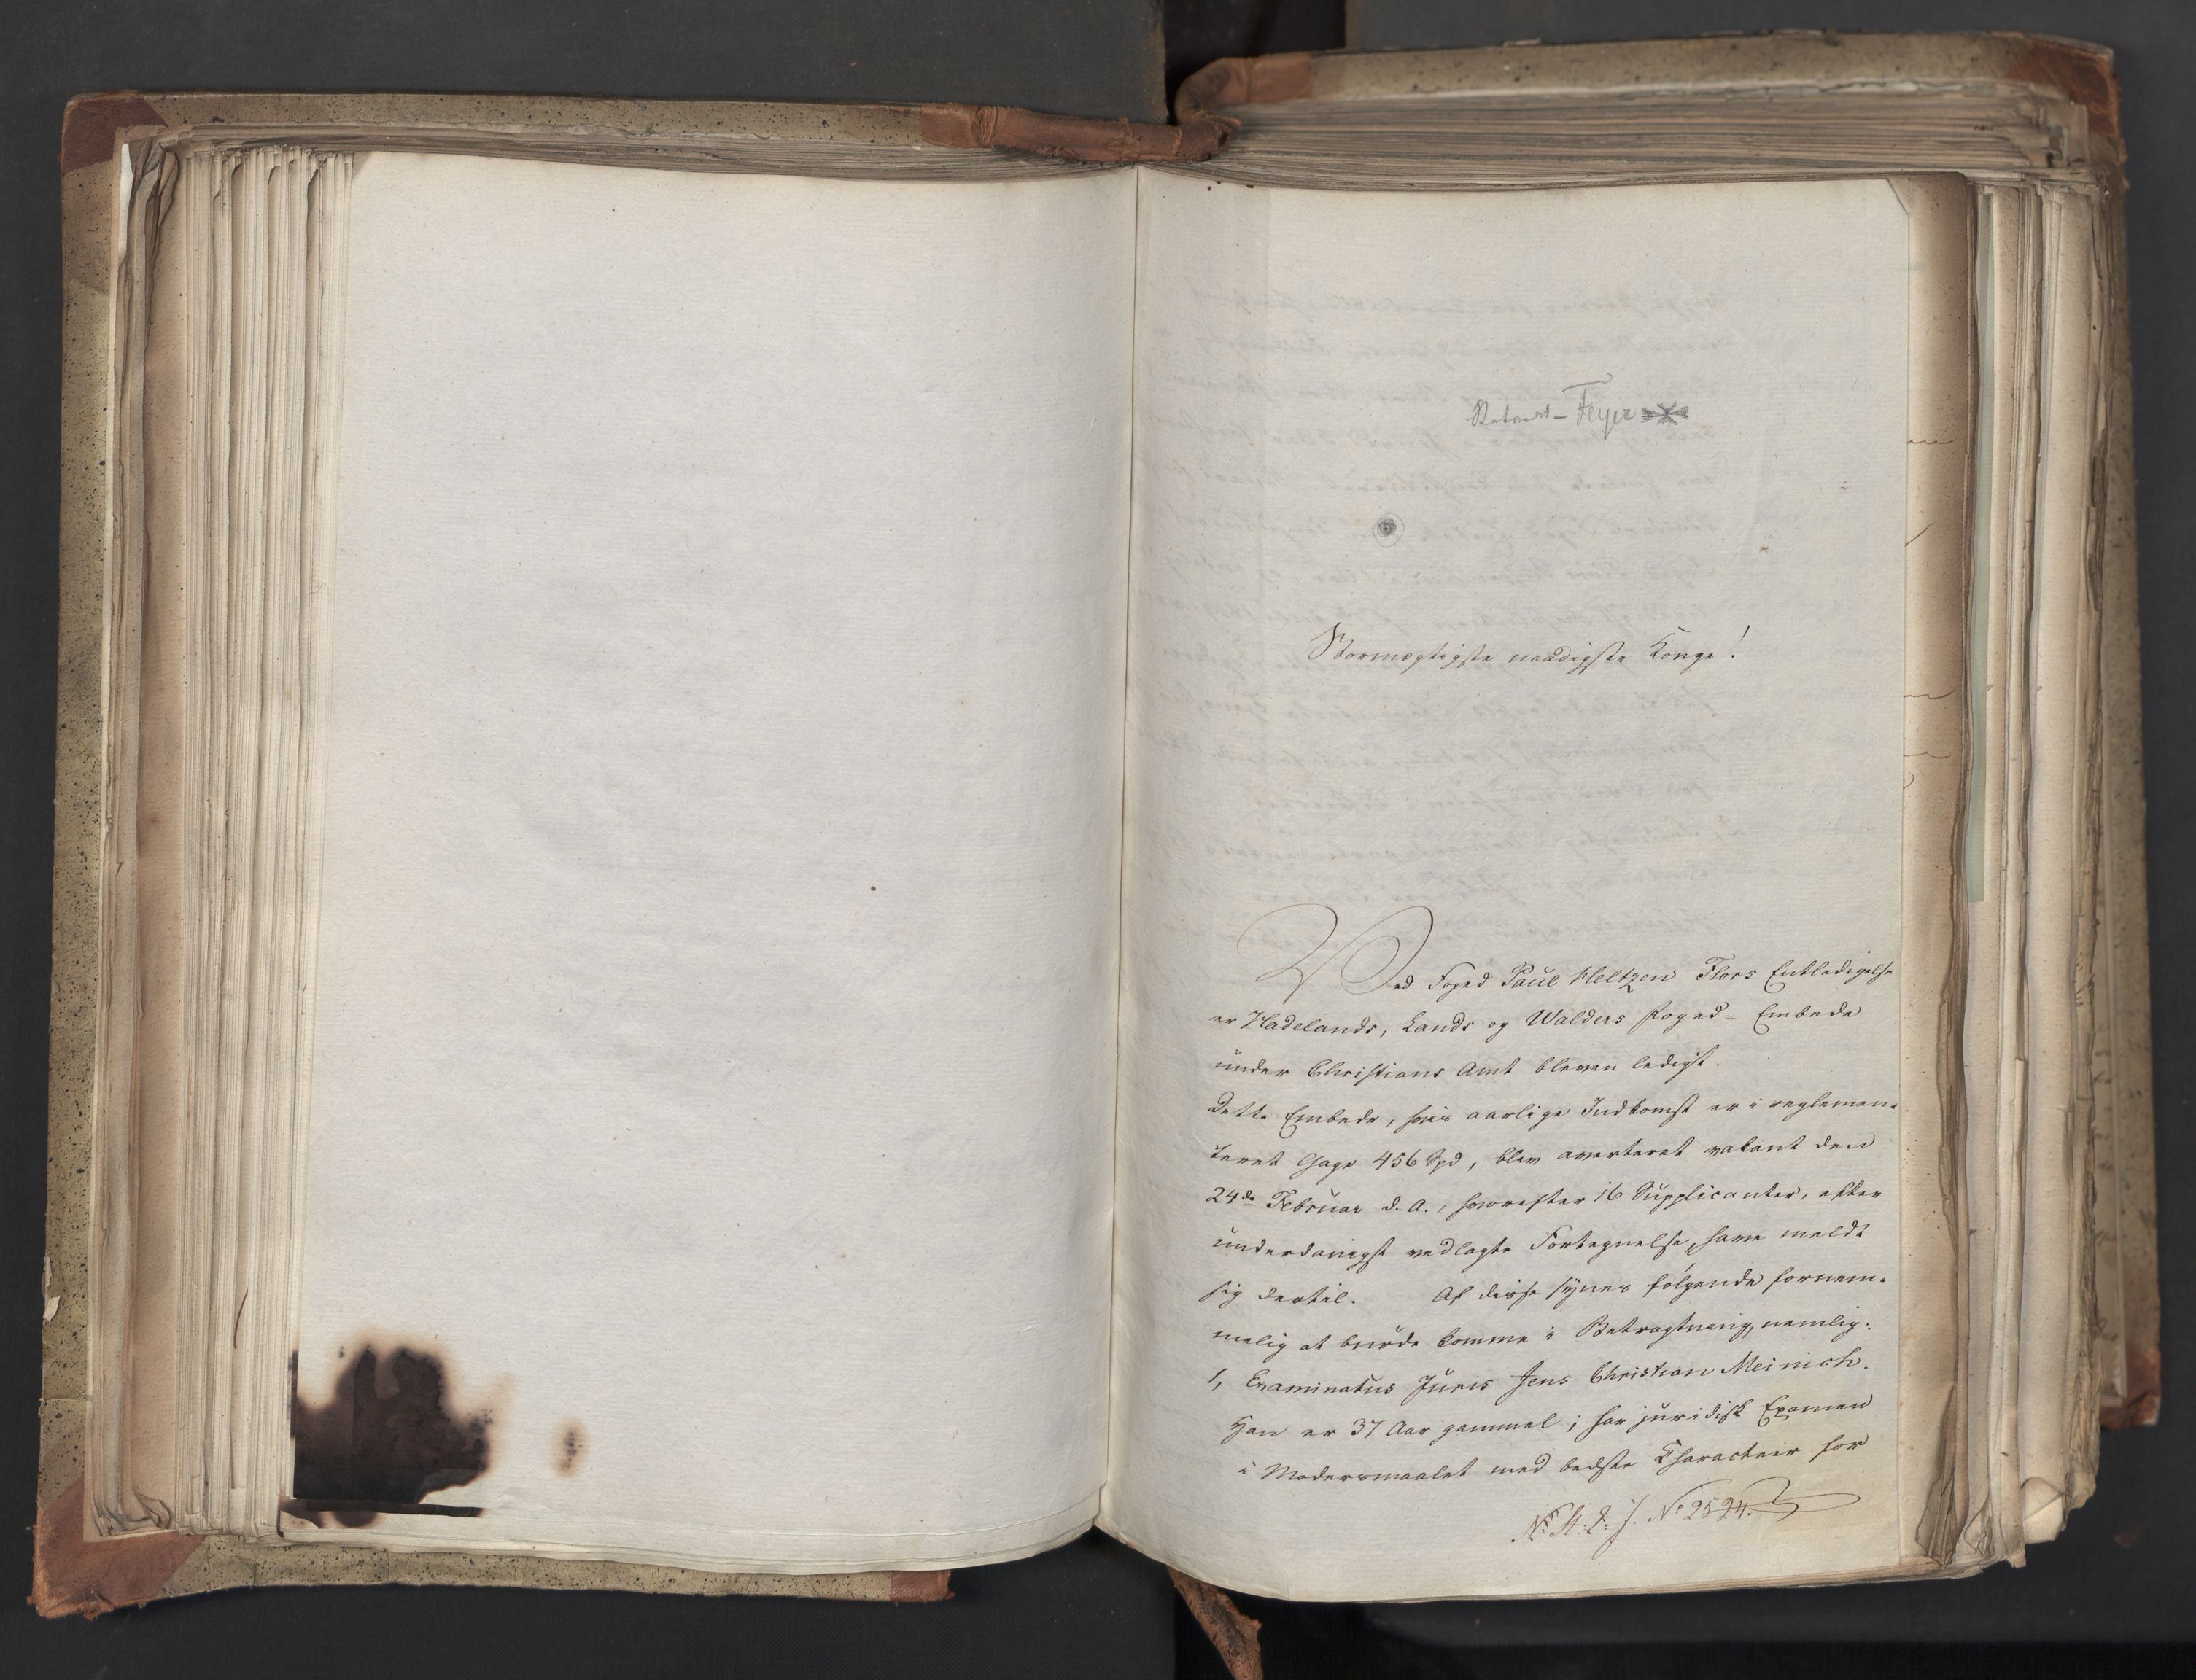 Statsrd– Feyer
Stormægtigste naadigste Konge!
Ved Foged Paul Heltzen Flors Entledigelse
er Hadelands, Lands og Walders Foged= Embede
under Christians Amt bleven ledigt.
Dette Embede, hvis aarlige Indkomst er i reglemen-
teret Gage 456 Spd, blev averteret vakant den
24de Februar d. A., hvorefter 16 Supplicanter, efter
underdanigst vedlagte Fortegnelse, have meldt
sig dertil. Af disse synes følgende fornem-
melig at burde komme i Betragtning, nemlig:
1, Examinatus Juris Jens Christian Meinich.
Han er 37 Aar gammel; har juridisk Examen
i Modersmaalet med bedste Characteer for
N: St: S: J. No 2524.